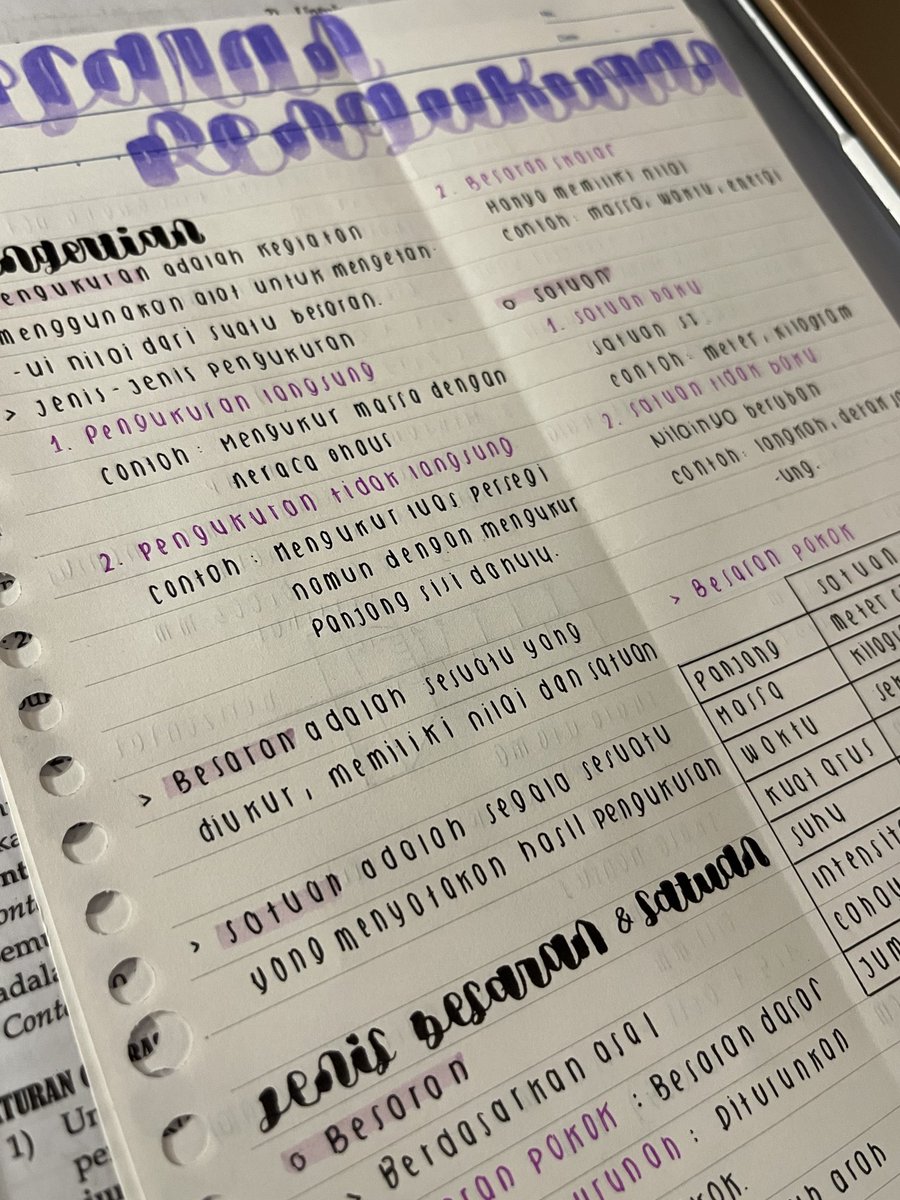 Pengukuran
engertian
engukuran adalah kegiatan
menggunakan alat untuk mengetah-
-ui nilai dari suatu besaran.
> Jenis-Jenis pengukuran
1. Pengukuran langsung
contoh : Mengukur massa dengan
neraca ohaus
2. pengukuran tidak langsung
contoh : Mengukur luas persegi
namun dengan mengukur
panjang sisi dahulu.
> Besaran adalah sesuatu yang
diukur, memiliki nilai dan satuan
> satuan adalah segala sesuatu
yang menyatakan hasil pengukuran
Jenis Besaran & satuan
o Besaran
> Berdasarkan asal
ran pokok : Besaran dasar
urunan : Diturunkan
kok.
h arah
2. Besaran skalar
Hanya memiliki nilai
contoh: massa, waktu, energi
o satuan
1. satuan baku
satuan SI
contoh: meter, kilogram
2. satuan tidak baku
Nilainya berubah
contoh: langkah, detak ja
-ung.
> Besaran pokok
satuan
Panjang meter
Massa kilog
Waktu se
Kuat arus
Suhu
Intensita
cahay
Jum
RA
TURAN
1) Ur
pe
adala
Conto